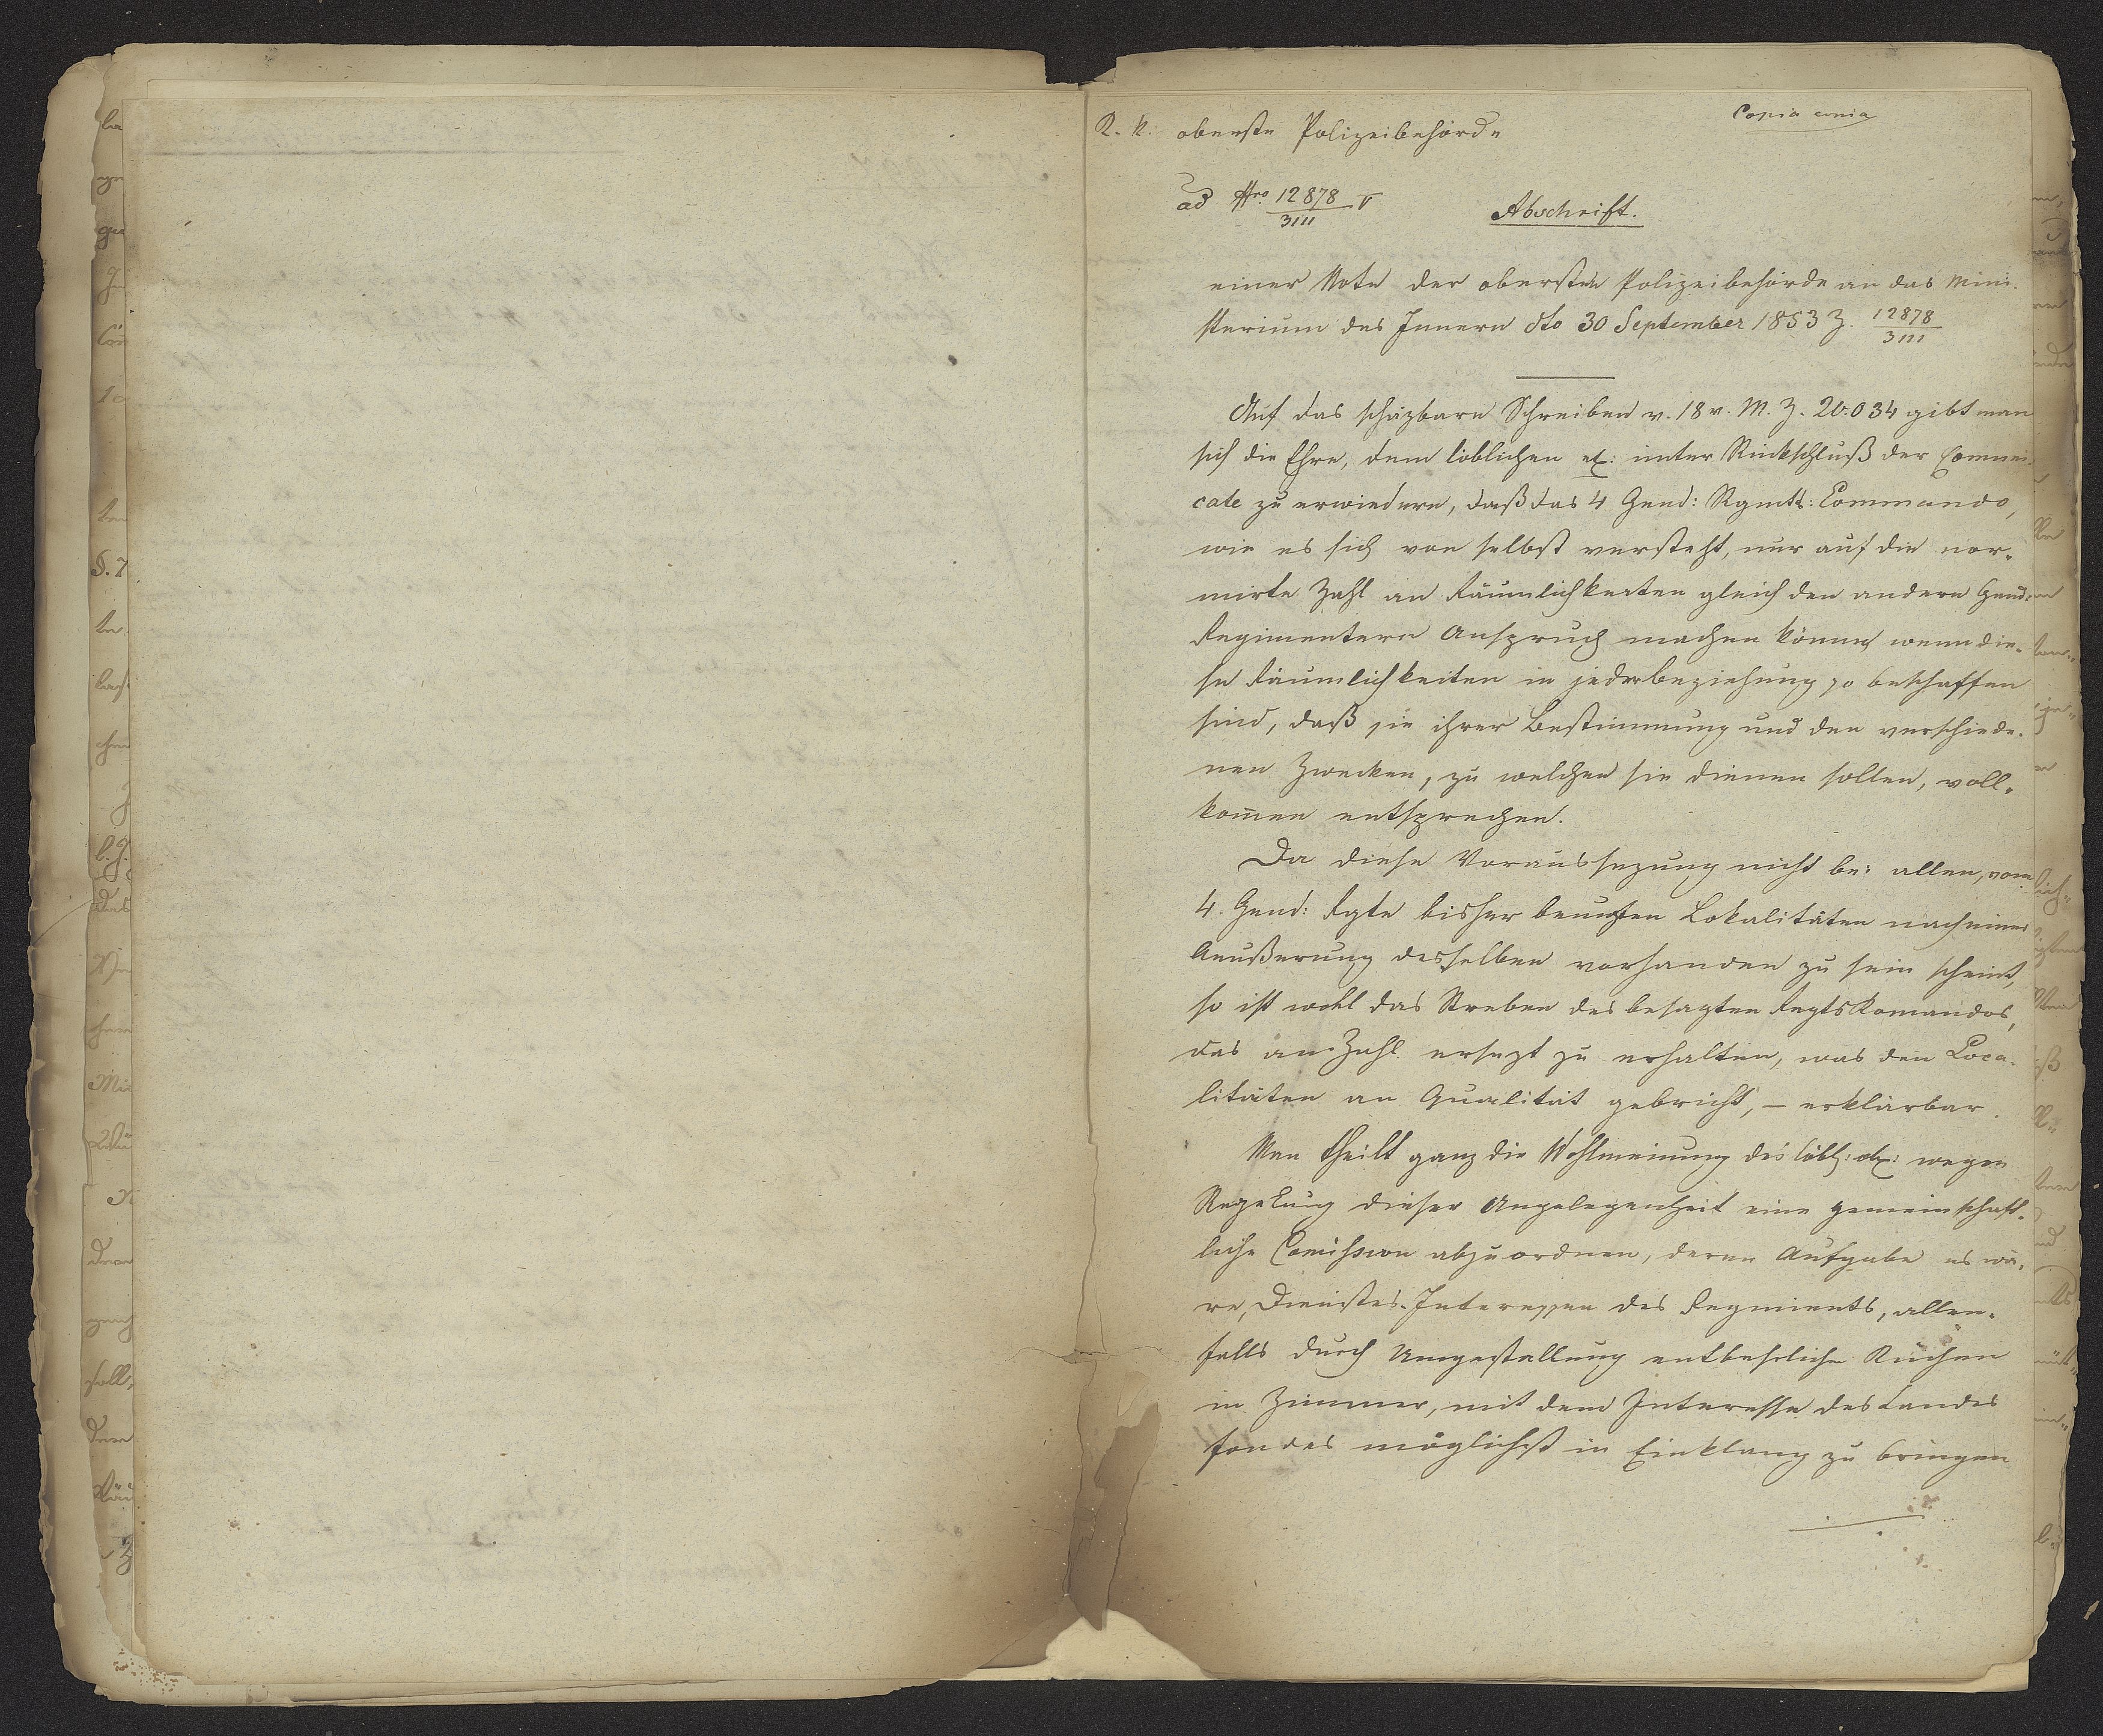 Copia
K. k. oberste Polizeibehörde
ad Nro 12878/3111 V
Abschrift.
einer Note der obersten Polizeibehörde an das Mini-
sterium des Innern dto 30 September 1853 Z. 12878/3111
Auf das schäzbare Schreiben v. 18 v. M. Z. 20.034 gibt man
sich die Ehre, dem löblichen etc: unter Rückschluß der Commu-
cate zu erwiedern, daß das 4 Gend: Rgmts: Commando,
wie es sich von selbst versteht, nur auf die nor-
mirte Zahl an Räumlichkeiten gleich den andern Gend:
Regimentern Anspruch machen könne, wenn die-
se Räumlichkeiten in jeder Beziehung so beschaffen
sind, daß sie ihrer Bestimmung und den verschiede-
nen Zwecken, zu welchen sie dienen sollen, voll-
kom̅en entsprechen.
Da diese Voraussezung nicht bei allen, vom
4. Gend: Rgte bisher benuzten Lokalitäten nach einer
Aeußerung desselben vorhanden zu sein scheint,
so ist wohl das Streben des besagten Regts Komandos,
das an Zahl ersezt zu erhalten, was den Loca-
litäten an Qualität gebricht, – erklärbar.
Man theilt ganz die Wohlmeinung des löbl: etc: wegen
Regelung dieser Angelegenheit eine gemeinschaft-
liche Comission abzuordnen, deren Aufgabe es wä-
re, Dienstes-Interessen des Regiments, allen-
falls durch Umgestaltung entbehrliche Küchen
in Zimmer, mit dem Interesse des Landes
fondes möglichst in Einklang zu bringen